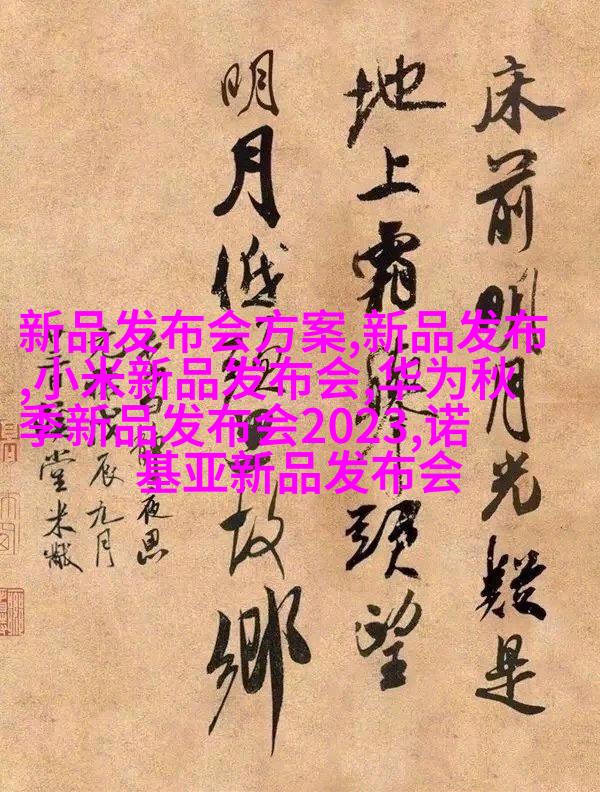 床前明月光疑是
地上霜舉頭望
明月低頭思故鄉
白夜思
辰九月
堂米黻
新品发布会方案,新品发布
,小米新品发布会,华为秋
季新品发布会2023,诺
基亚新品发布会